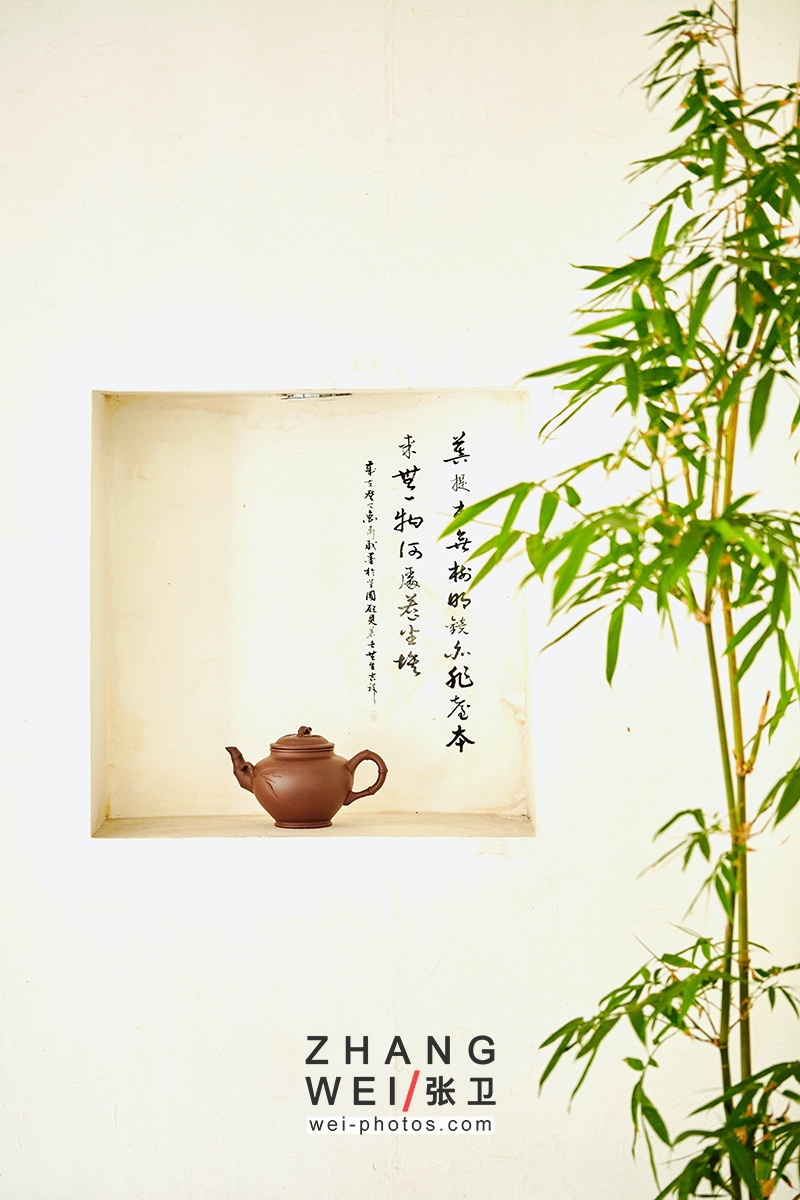 菩提本無樹明鏡亦非臺本
来無一物何處惹尘埃
吉祥
ZHANG
WEI/张卫
wei-photos.com